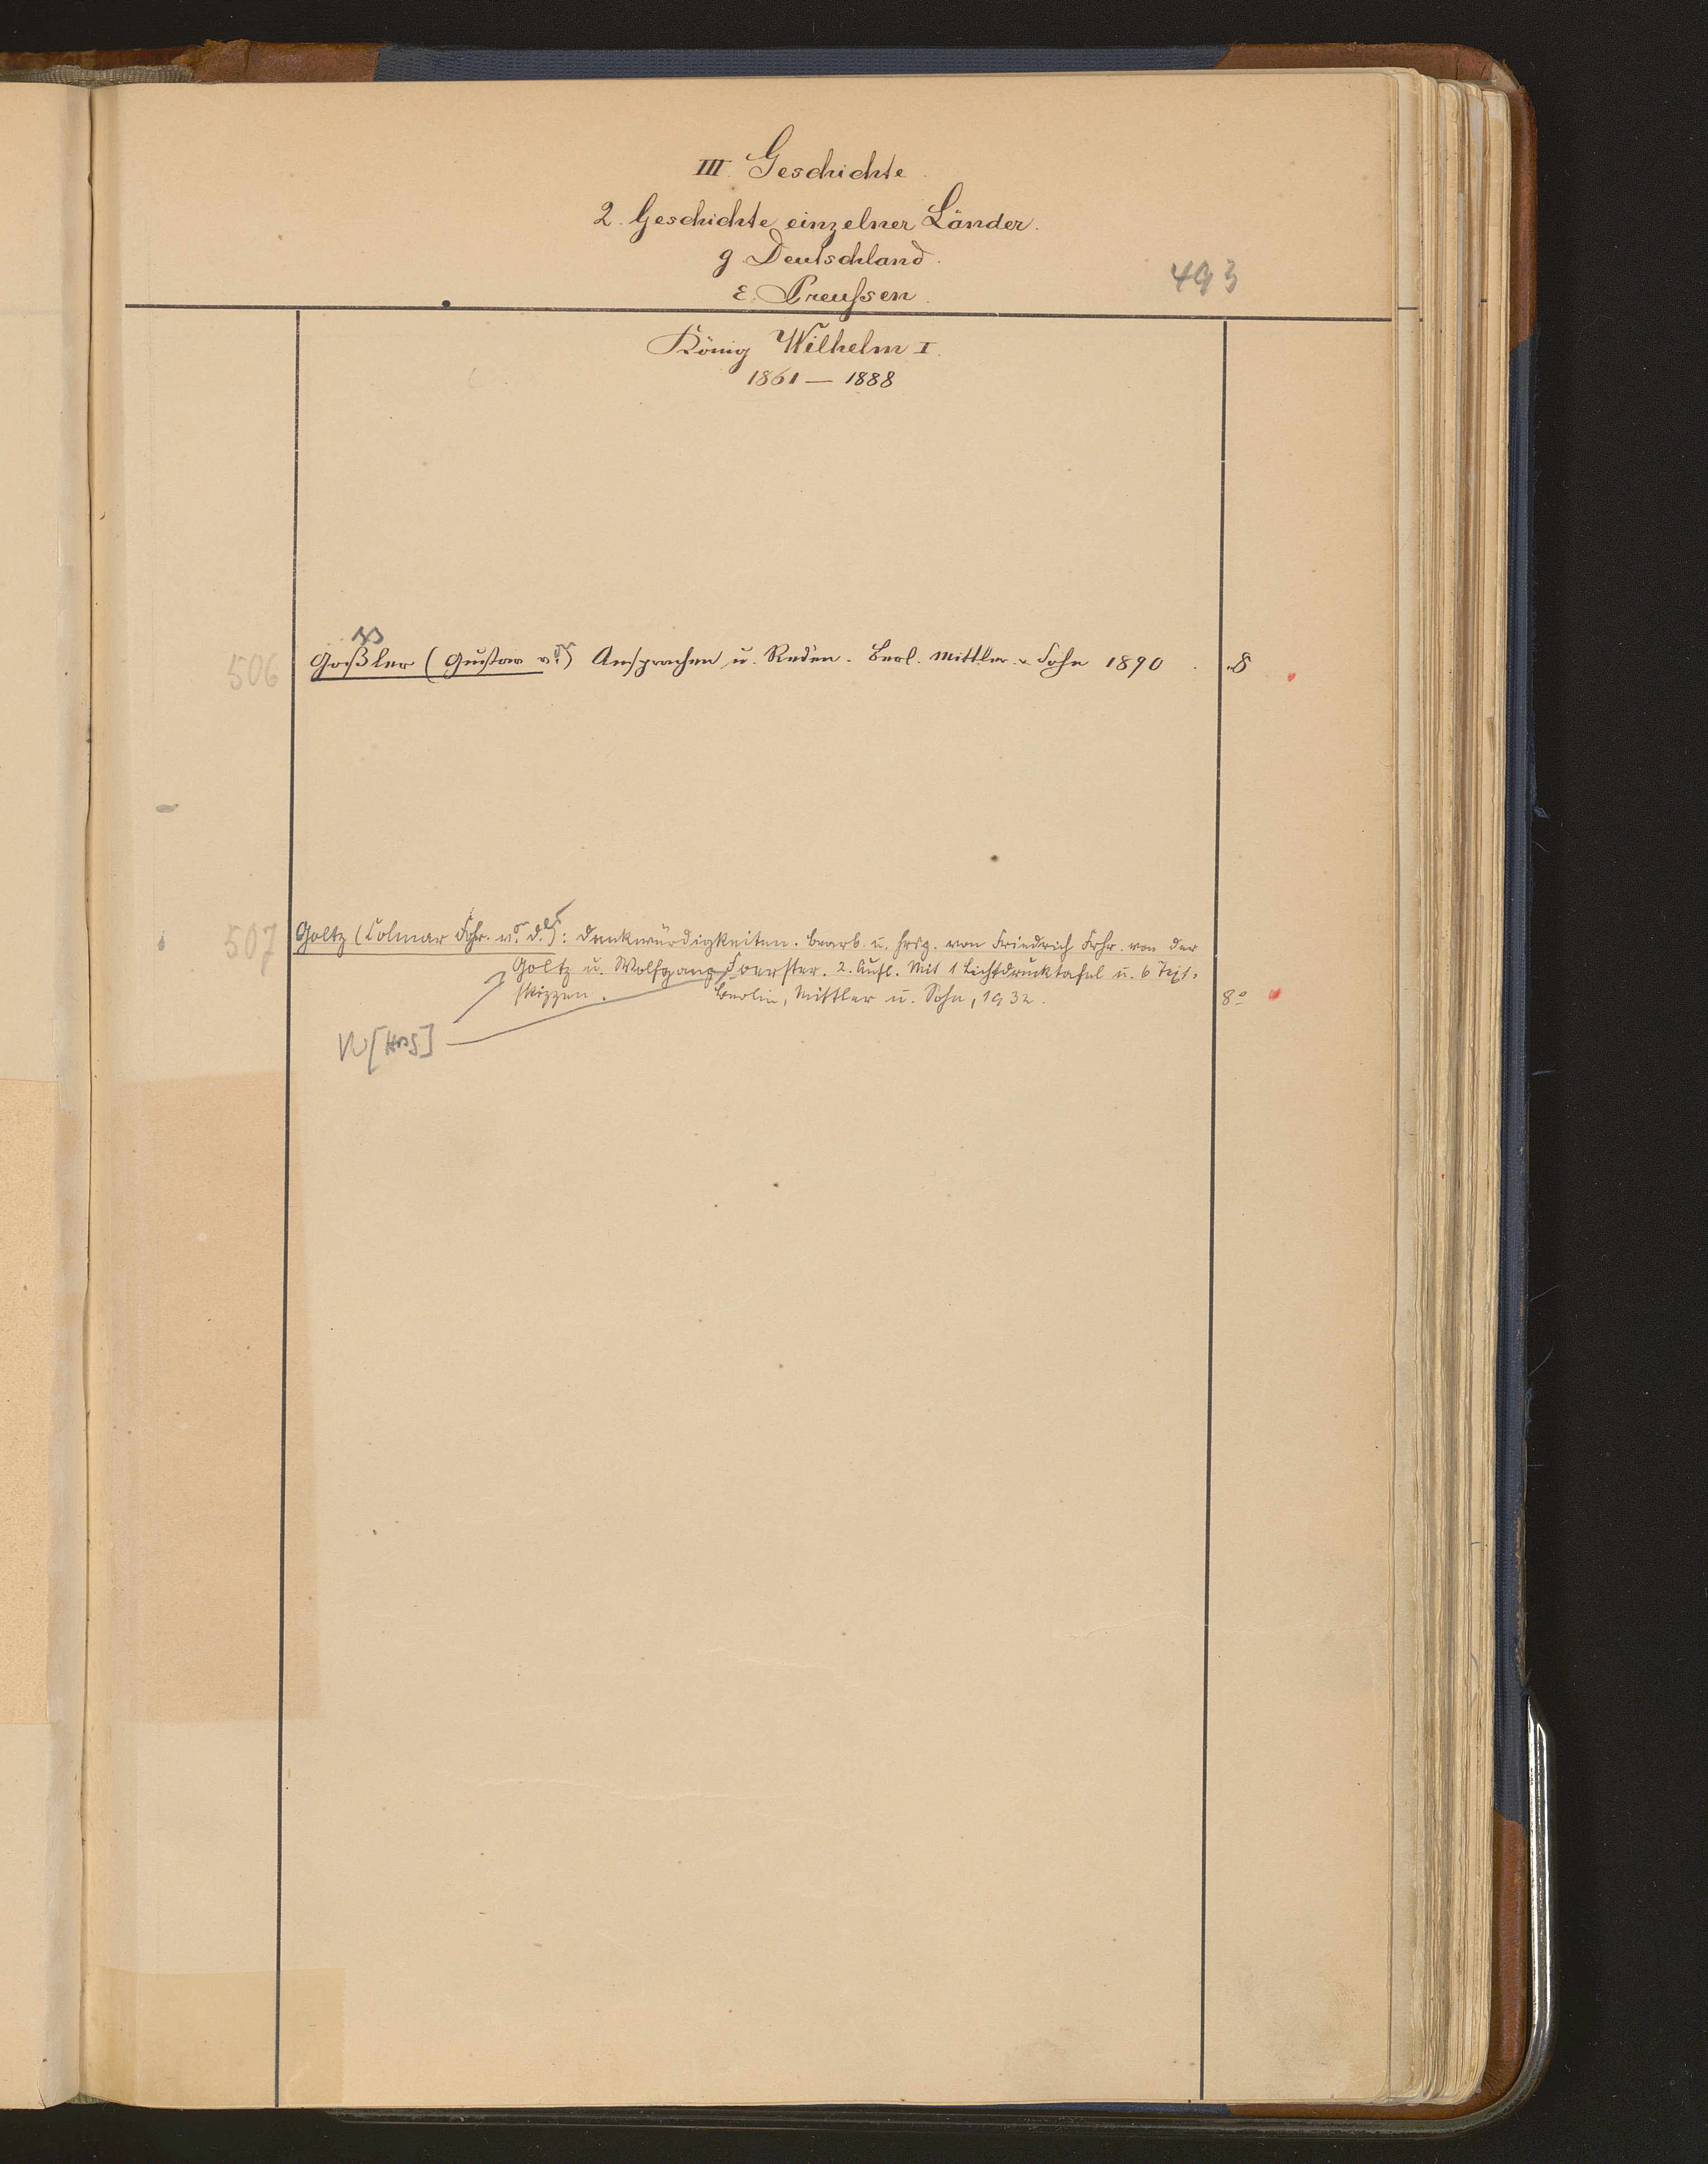 III. Geschichte.
2. Geschichte einzelner Länder.
g. Deutschland.
ε. Preußen.
493
König Wilhelm I.
1861 — 1888
506 Goßler (Gustav v.) Ansprachen u. Reden. Berl. Mittler u. Sohn 1890. 8
507 Goltz (Colmar Frhr. v. d.): Denkwürdigkeiten. Bearb. u. hrsg. von Friedrich Frhr. von der
Goltz u. Wolfgang Foerster. 2. Aufl. Mit 1 Lichtdrucktafel u. 6 Text-
skizzen. Berlin, Mittler u. Sohn, 1932. 8°